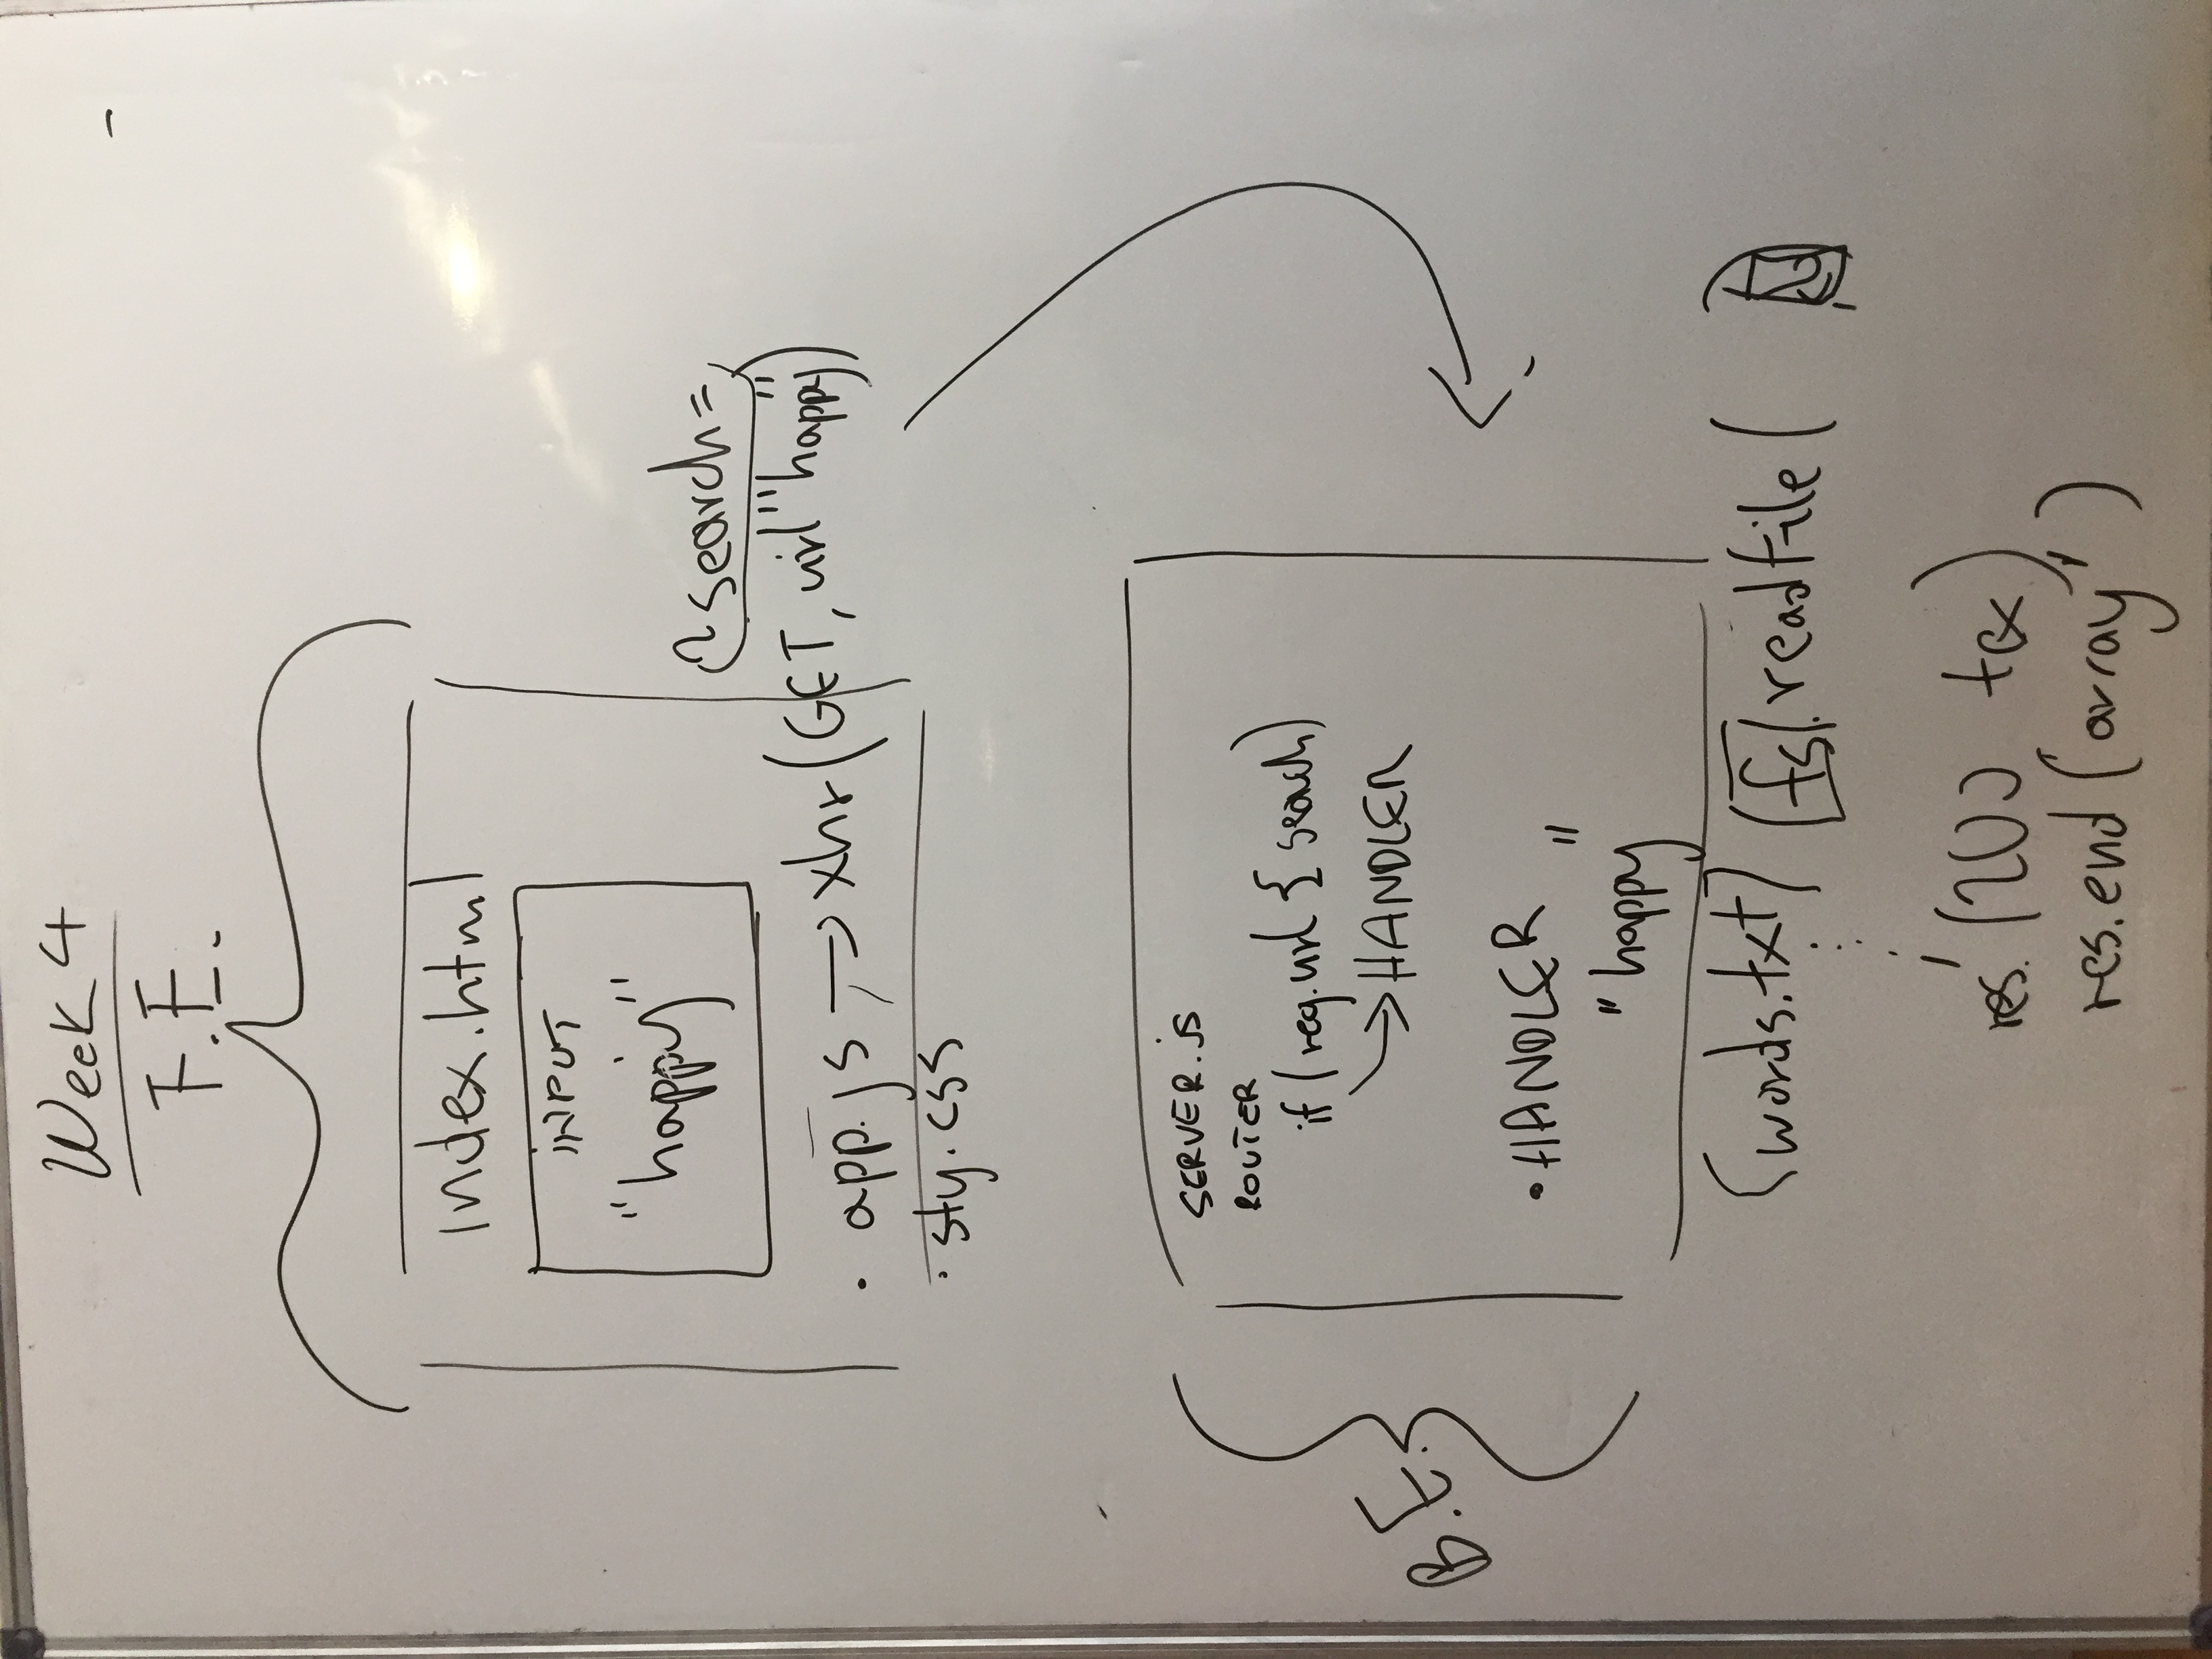 Week 4
F.E.
index.html
INPUT
"happy"
?search=
• app.js → xhr(GET, url "happy")
• sty.css
B.E.
SERVER.js
ROUTER
if (req.url { search)
→ HANDLER
• HANDLER
"happy"
[words.txt] (fs.readFile(
res. (200 tex)
res.end ('array')